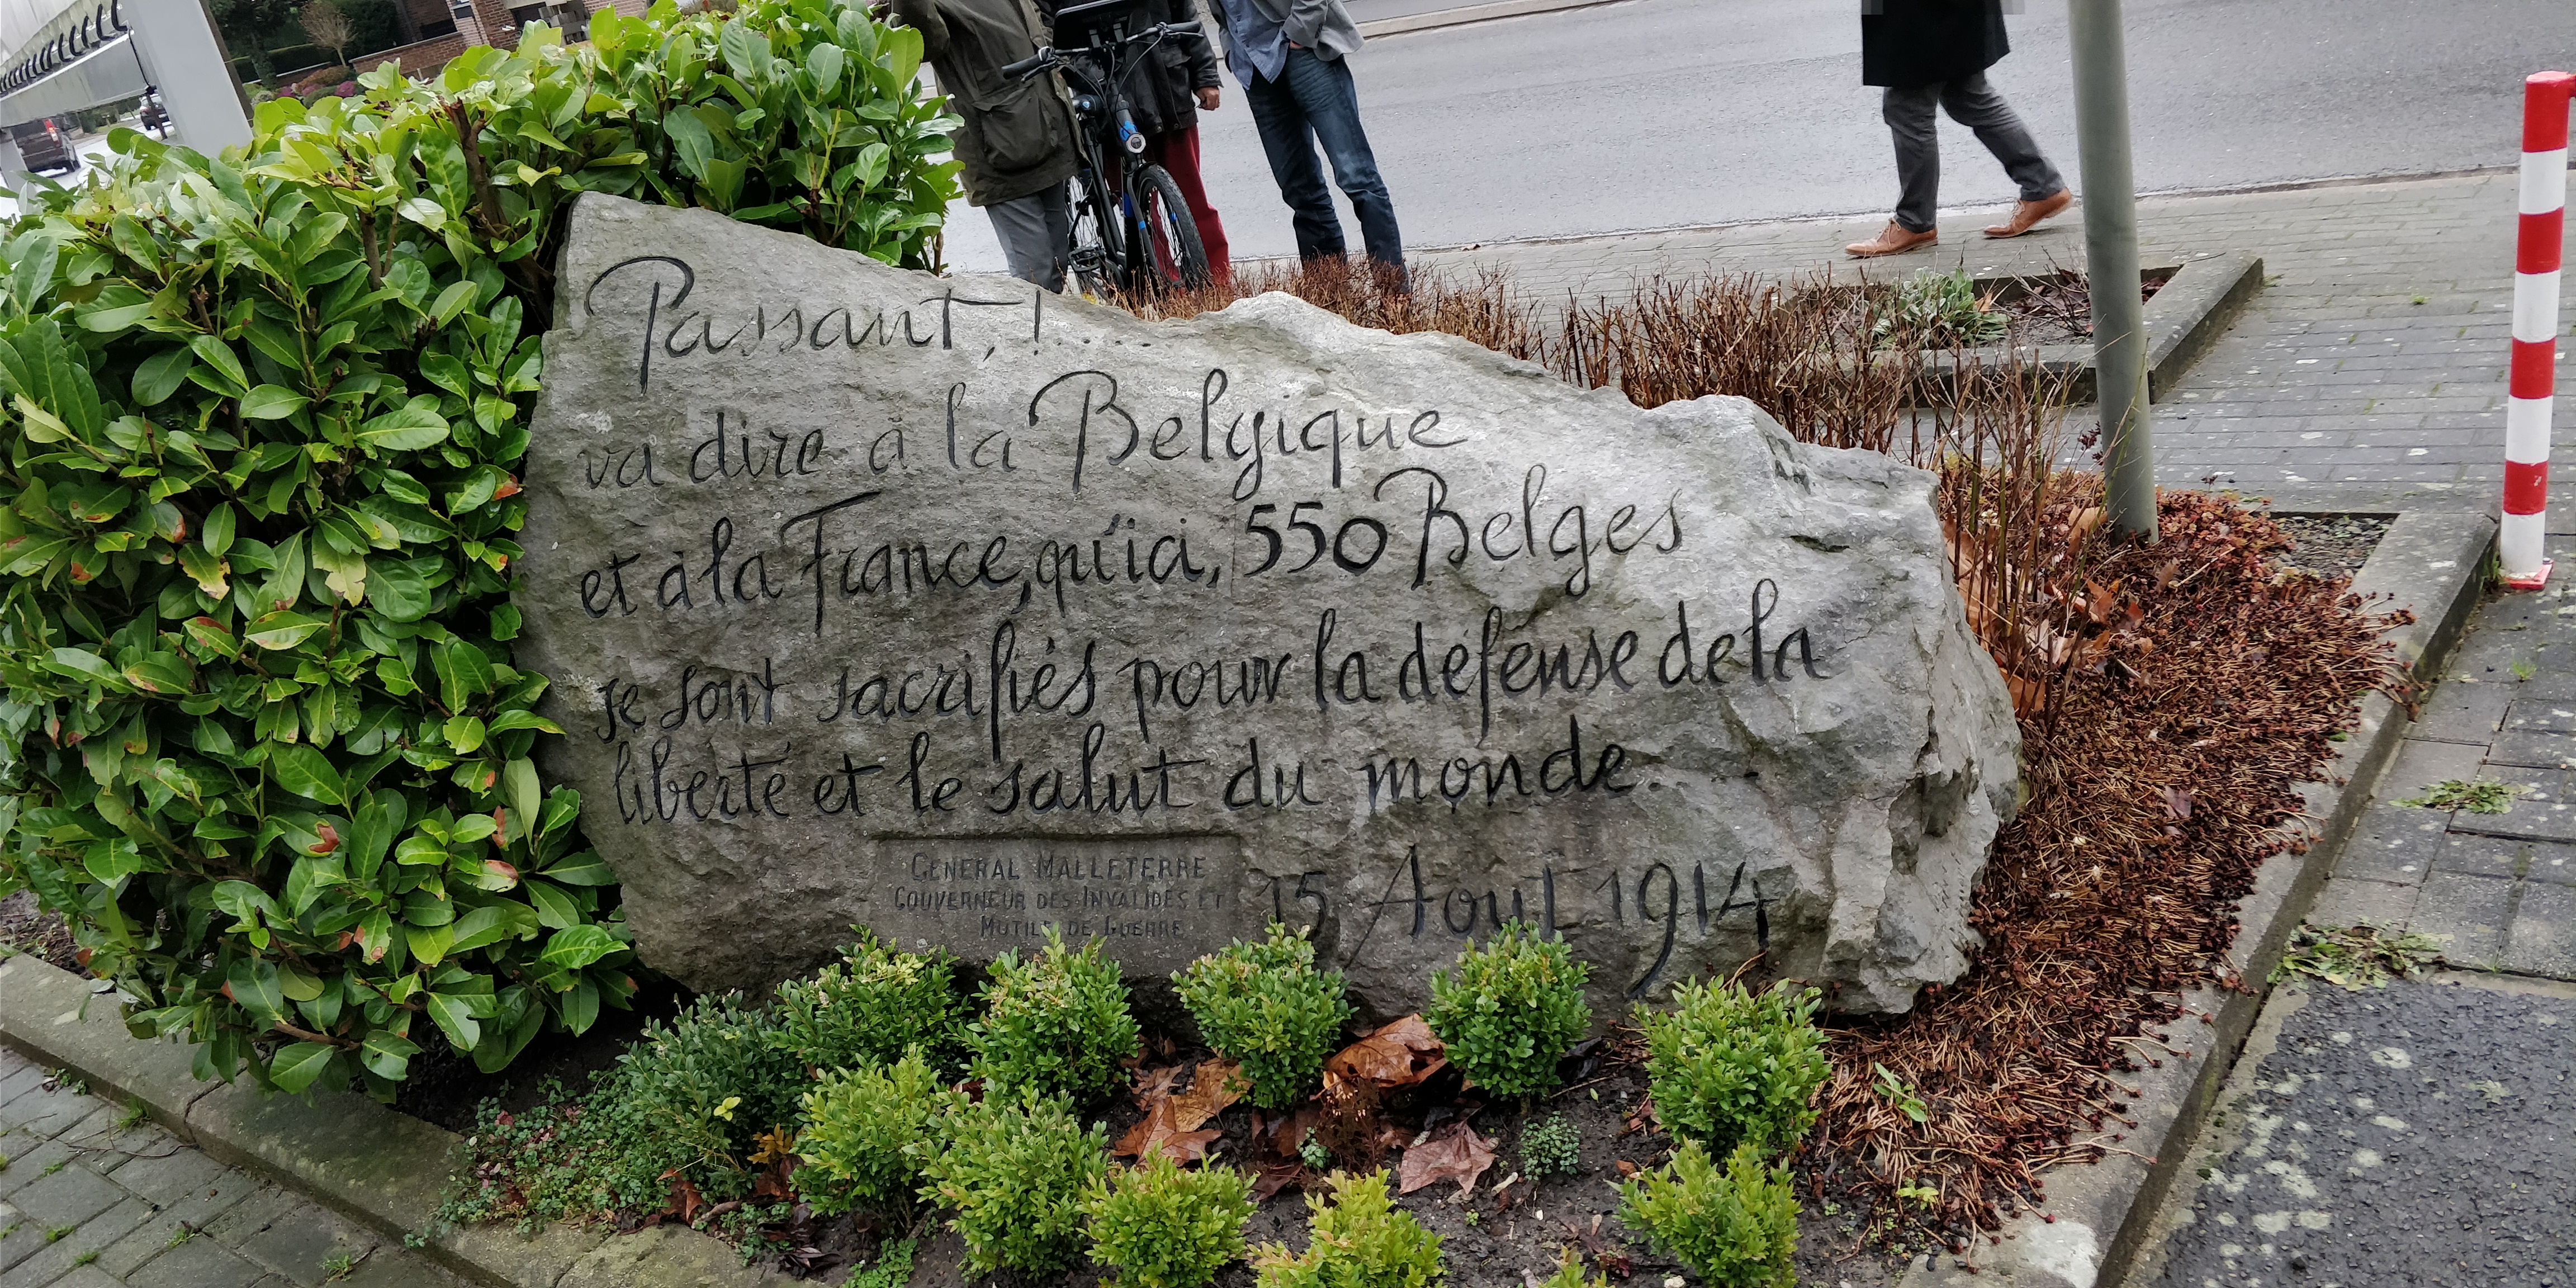 Passant, !....
va dire à la Belgique
et à la France, qu'ici, 550 Belges
se sont sacrifiés pour la défense de la
liberté et le salut du monde.
GENERAL MALLETERRE
GOUVERNEUR DES INVALIDES ET
MUTILÉS DE GUERRE
15 Aout 1914